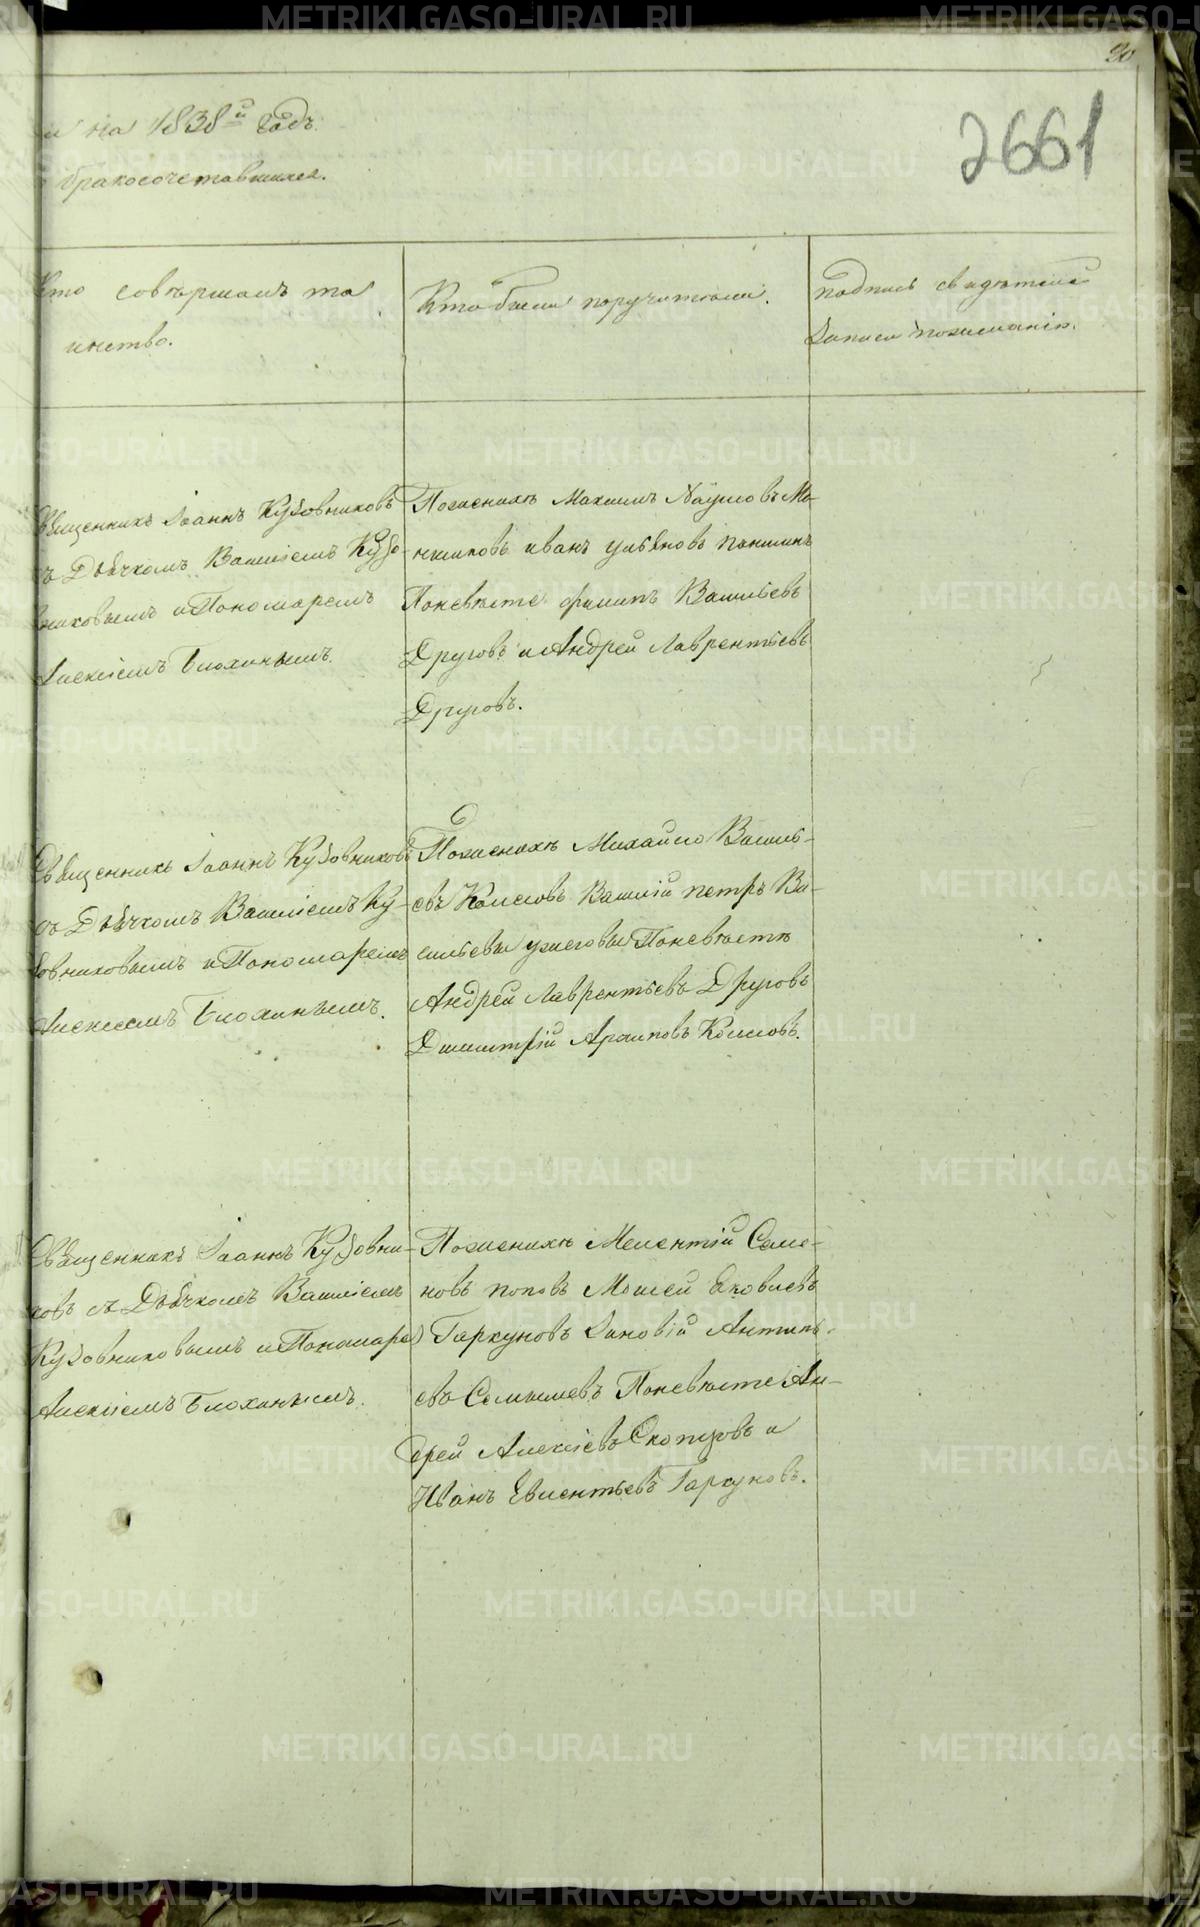 20
2661
и на 1838й Годъ.
бракосочетавшихся.
Кто совѣршалъ та
инство.
Кто были поручители.
подпись свидѣтелей
Записи по желанію.
Священникъ Iоаннъ Кузовниковъ
съ Дьячкомъ Василіемъ Кузо-
вниковымъ и Пономаремъ
Алексіемъ Блохинымъ.
По женихѣ Максимъ Наумовъ Ма-
иванъ ульяновъ паншинъ
По невѣсте филипъ Васильевъ
Друговъ и Андрей Лаврентьевъ
Друговъ.
Священникъ Iоаннъ Кузовниковъ
съ Дьячкомъ Василіемъ Ку-
зовниковымъ и Пономаремъ
Алексіемъ Блохинымъ.
По женихѣ Михайло Василь-
евъ Василій петръ Ва-
сильевы По невѣстѣ
Андрей Лаврентьевъ Друговъ
Димитрій
Священникъ Iоаннъ Кузовни-
ковъ съ Дьячкомъ Василіемъ
Кузовниковымъ и Пономаре
Алексіемъ Блохинымъ.
По женихѣ Мелентій Семе-
новъ поповъ Моисей Яковлевъ
Гаркуновъ Зиновій Антипь-
евъ По невѣсте Ан-
дрей Алексіевъ и
Иванъ Гаркуновъ.
METRIKI.GASO-URAL.RU